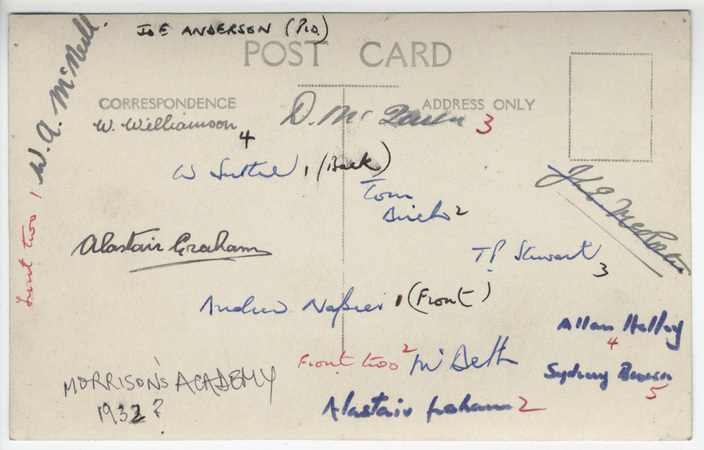 JOE ANDERSON (Pro)
POST CARD
W. A. McNeill
CORRESPONDENCE
ADDRESS ONLY
W. Williamson 4
D. Mc 3
W 1 (Back)
Tom
2
Front two 1
Alastair Graham
T P Stewart 3
Andrew Napier 1 (Front)
Allan 4
Front two 2 McBeth
Sydney Brown 5
MORRISON'S ACADEMY
1932?
Alastair Graham 2